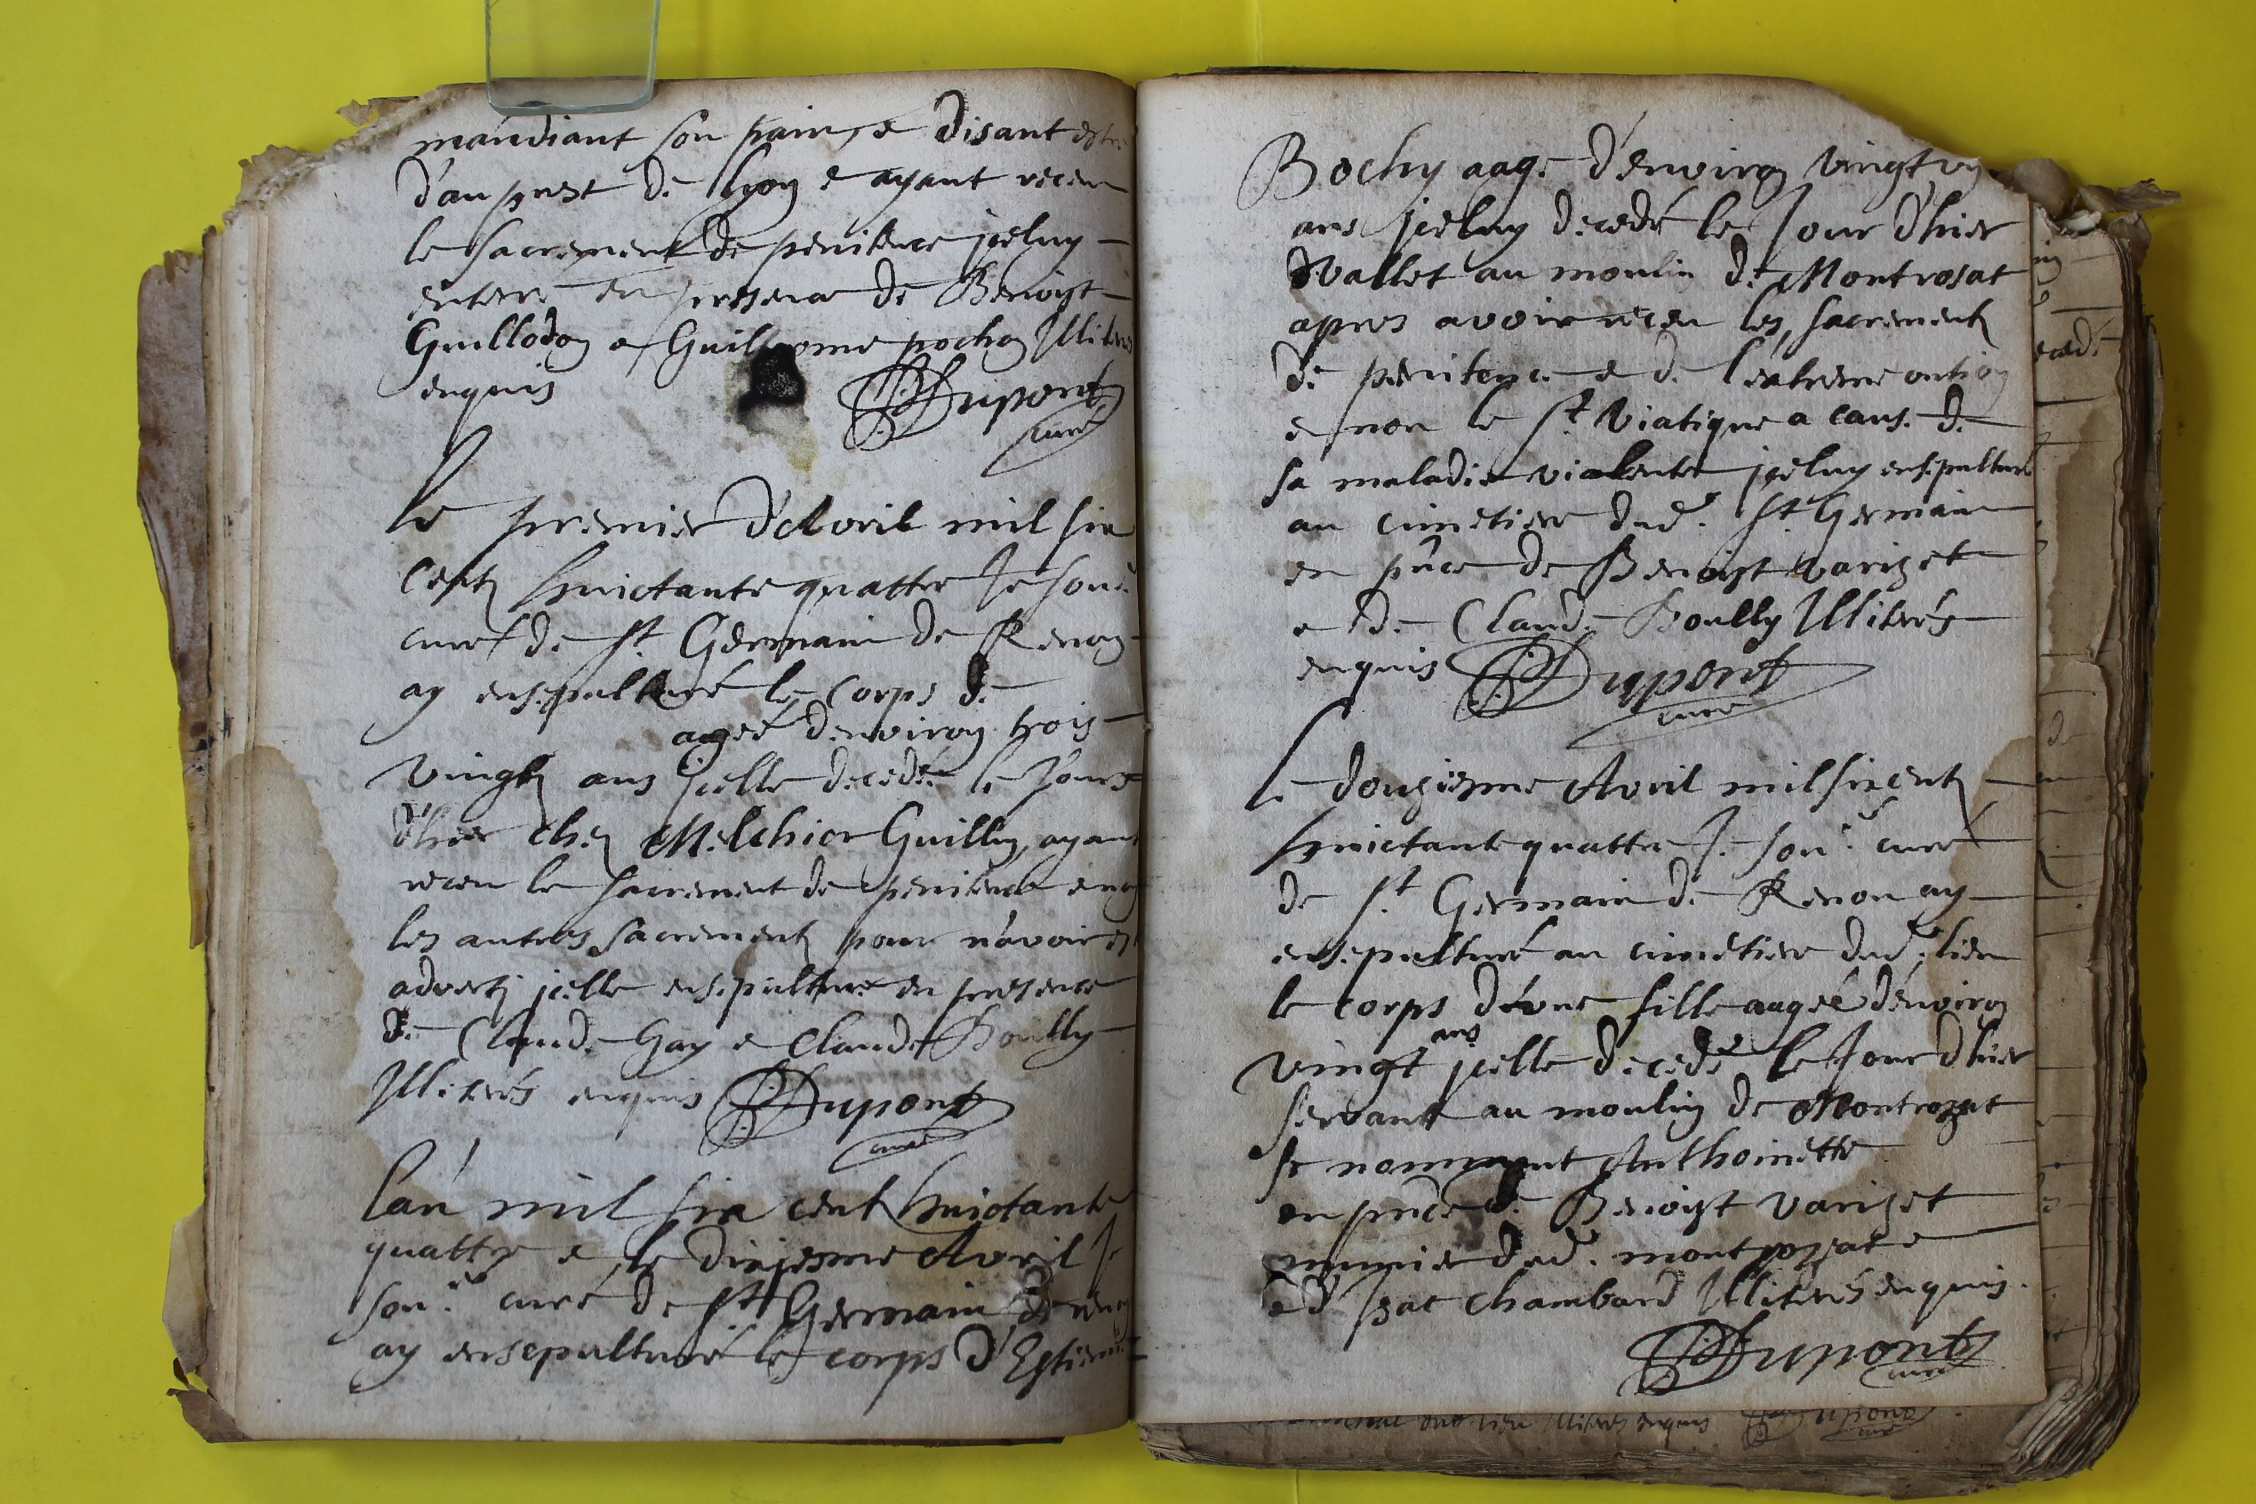 mandiant son pain, e disant estre
d'aupres de Lyon e ayant receu
le sacrement de penitence jceluy
enterré en presence de Benoist
Guillodon e Guillaume pochon Illiterés
enquis Dupont
curé
le premier d'Avril mil six
cents huictante quattre Je sous.é
curé de St Germain de Renon
ay ensepulturé le corps de
ageé d'environ trois
vingts ans jcelle decedeé le Jour
d'hier chez Melchior Guillin, ayant
receu le sacrement de penitence e non
les autres sacrements pour n'avoir esté
adverti jcelle ensepulturé en presence
de Claude Gay e Claude Boully
Illiterés enquis Dupont
curé
l'an mil six cents huictante
quattre e le dixiesme Avril Je
sous.é curé de St Germain de Renon
ay ensepulturé le corps d'Estienne
Bochy aagé d'environ vingt un
ans jceluy decedé le Jour d'hier
Vallet au moulin de Montrosat
apres avoir receu les sacrements
de penitence e de l'extreme ontion
e non le St Viatique a cause de
sa maladie violente jceluy ensepulturé
au cimetiere dud. St Germain
en pnce de Benoist Varizet
e de Claude Boully Illiterés
enquis Dupont
curé
le douziesme Avril mil six cents
huictante quattre Je sous.é curé
de St Germain de Renon ay
ensepulturé au cimetiere dud. lieu
le corps d'une fille aageé d'environ
vingt ans jcelle decedeé le Jour d'hier
servante au moulin de Montrozat
se nommant Anthoinette
en pnce de Benoist Varizet
munier dud. montrozat e
e d'Isac Chambard Illiterés enquis.
Dupont
curé
Illiterés enquis Dupont
curé